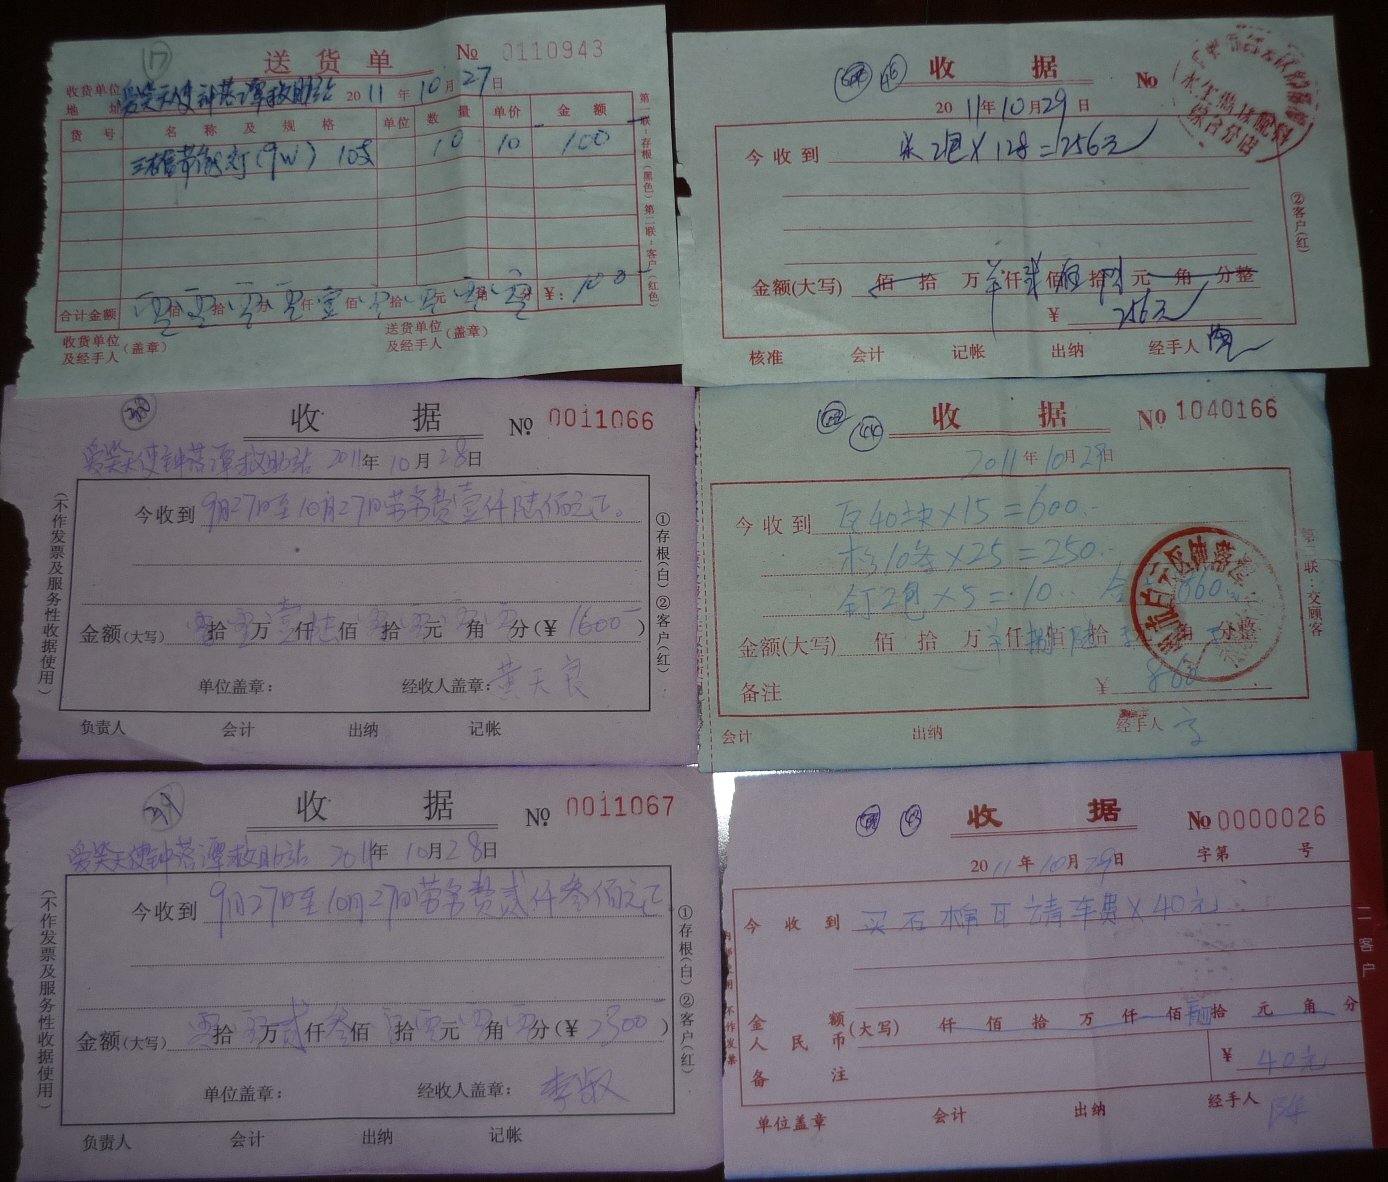 ⑰
送货单
№ 0110943
收货单位
地址
爱笑天使钟落潭救助站
2011年10月27日
货号 名称及规格 单位 数量 单价 金额
节能灯(9W) 10支 10 10 100
合计金额 零佰零拾零万零仟壹佰零拾零元零角零分 ¥:100
收货单位及经手人(盖章)
送货单位及经手人(盖章)
第一联:存根(黑色) 第二联:客户(红色)
收据
№
2011年10月29日
今收到 米2包×128=256元
金额(大写) 佰拾万仟佰拾元角分整
¥ 256元
核准 会计 记帐 出纳 经手人
②客户(红)
收据
№ 0011066
爱笑天使钟落潭救助站 2011年10月28日
今收到 9月27日至10月27日劳务费壹仟陆佰元正。
金额(大写) 零拾零万壹仟陆佰零拾零元零角零分(¥1600)
单位盖章: 经收人盖章:黄天良
负责人 会计 出纳 记帐
(不作发票及服务性收据使用)
①存根(白) ②客户(红)
收据
№ 1040166
2011年10月29日
今收到 瓦40块×15=600.-
杉10条×25=250.-
钉2包×5=10.. 合 860元
金额(大写) 佰拾万仟捌佰陆拾元角分整
备注 ¥ 860
会计 出纳 经手人
第二联:交顾客
收据
№ 0011067
爱笑天使钟落潭救助站 2011年10月28日
今收到 9月27日至10月27日劳务费贰仟叁佰元正
金额(大写) 零拾零万贰仟叁佰零拾零元零角零分(¥2300)
单位盖章: 经收人盖章:李
负责人 会计 出纳 记帐
(不作发票及服务性收据使用)
①存根(白) ②客户(红)
收据
№ 0000026
2011年10月29日 字第 号
今收到 买石棉瓦请车费×40元
金额人民币(大写) 仟佰拾万仟佰肆拾元角分
备注 ¥ 40元
单位盖章 会计 出纳 经手人 陈
二客户